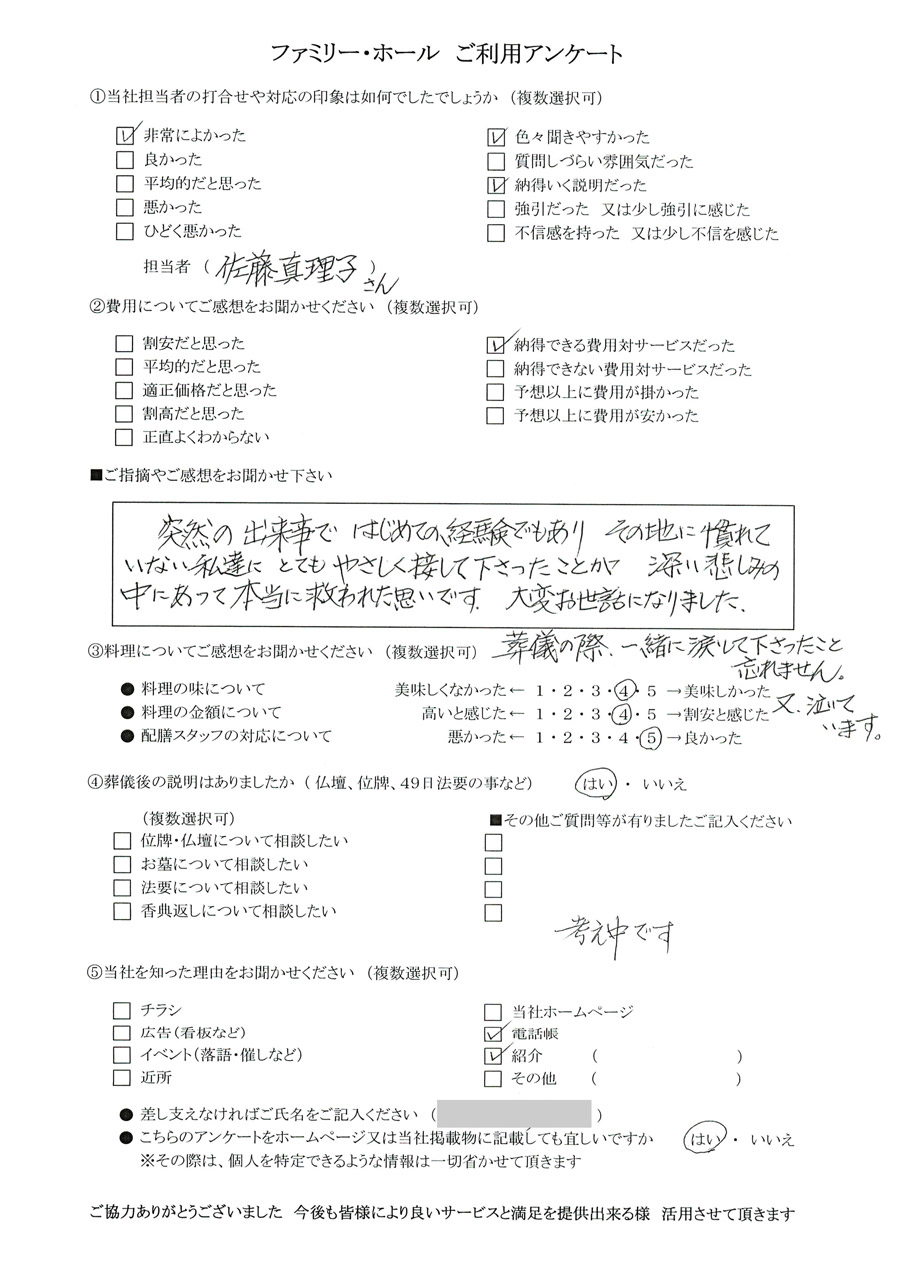 ファミリー・ホール ご利用アンケート
①当社担当者の打合せや対応の印象は如何でしたでしょうか （複数選択可）
非常によかった
良かった
平均的だと思った
悪かった
ひどく悪かった
色々聞きやすかった
質問しづらい雰囲気だった
納得いく説明だった
強引だった 又は少し強引に感じた
不信感を持った 又は少し不信を感じた
担当者 （ 佐藤真理子 ）さん
②費用についてご感想をお聞かせください （複数選択可）
割安だと思った
平均的だと思った
適正価格だと思った
割高だと思った
正直よくわからない
納得できる費用対サービスだった
納得できない費用対サービスだった
予想以上に費用が掛かった
予想以上に費用が安かった
■ご指摘やご感想をお聞かせ下さい
突然の出来事で はじめての経験でもあり その地に慣れて
いない私達に とてもやさしく接して下さったことが 深い悲しみの
中にあって本当に救われた思いです. 大変お世話になりました.
葬儀の際、一緒に涙して下さったこと
忘れません。
又、泣いて
います。
③料理についてご感想をお聞かせください （複数選択可）
● 料理の味について 美味しくなかった← 1・2・3・4・5 →美味しかった
● 料理の金額について 高いと感じた← 1・2・3・4・5 →割安と感じた
● 配膳スタッフの対応について 悪かった← 1・2・3・4・5 →良かった
④葬儀後の説明はありましたか （ 仏壇、位牌、49日法要の事など） はい ・ いいえ
（複数選択可）
位牌・仏壇について相談したい
お墓について相談したい
法要について相談したい
香典返しについて相談したい
■その他ご質問等が有りましたご記入ください
考え中です
⑤当社を知った理由をお聞かせください （複数選択可）
チラシ
広告（看板など）
イベント（落語・催しなど）
近所
当社ホームページ
電話帳
紹介 （ ）
その他 （ ）
● 差し支えなければご氏名をご記入ください （ ）
● こちらのアンケートをホームページ又は当社掲載物に記載しても宜しいですか はい ・ いいえ
※その際は、個人を特定できるような情報は一切省かせて頂きます
ご協力ありがとうございました 今後も皆様により良いサービスと満足を提供出来る様 活用させて頂きます